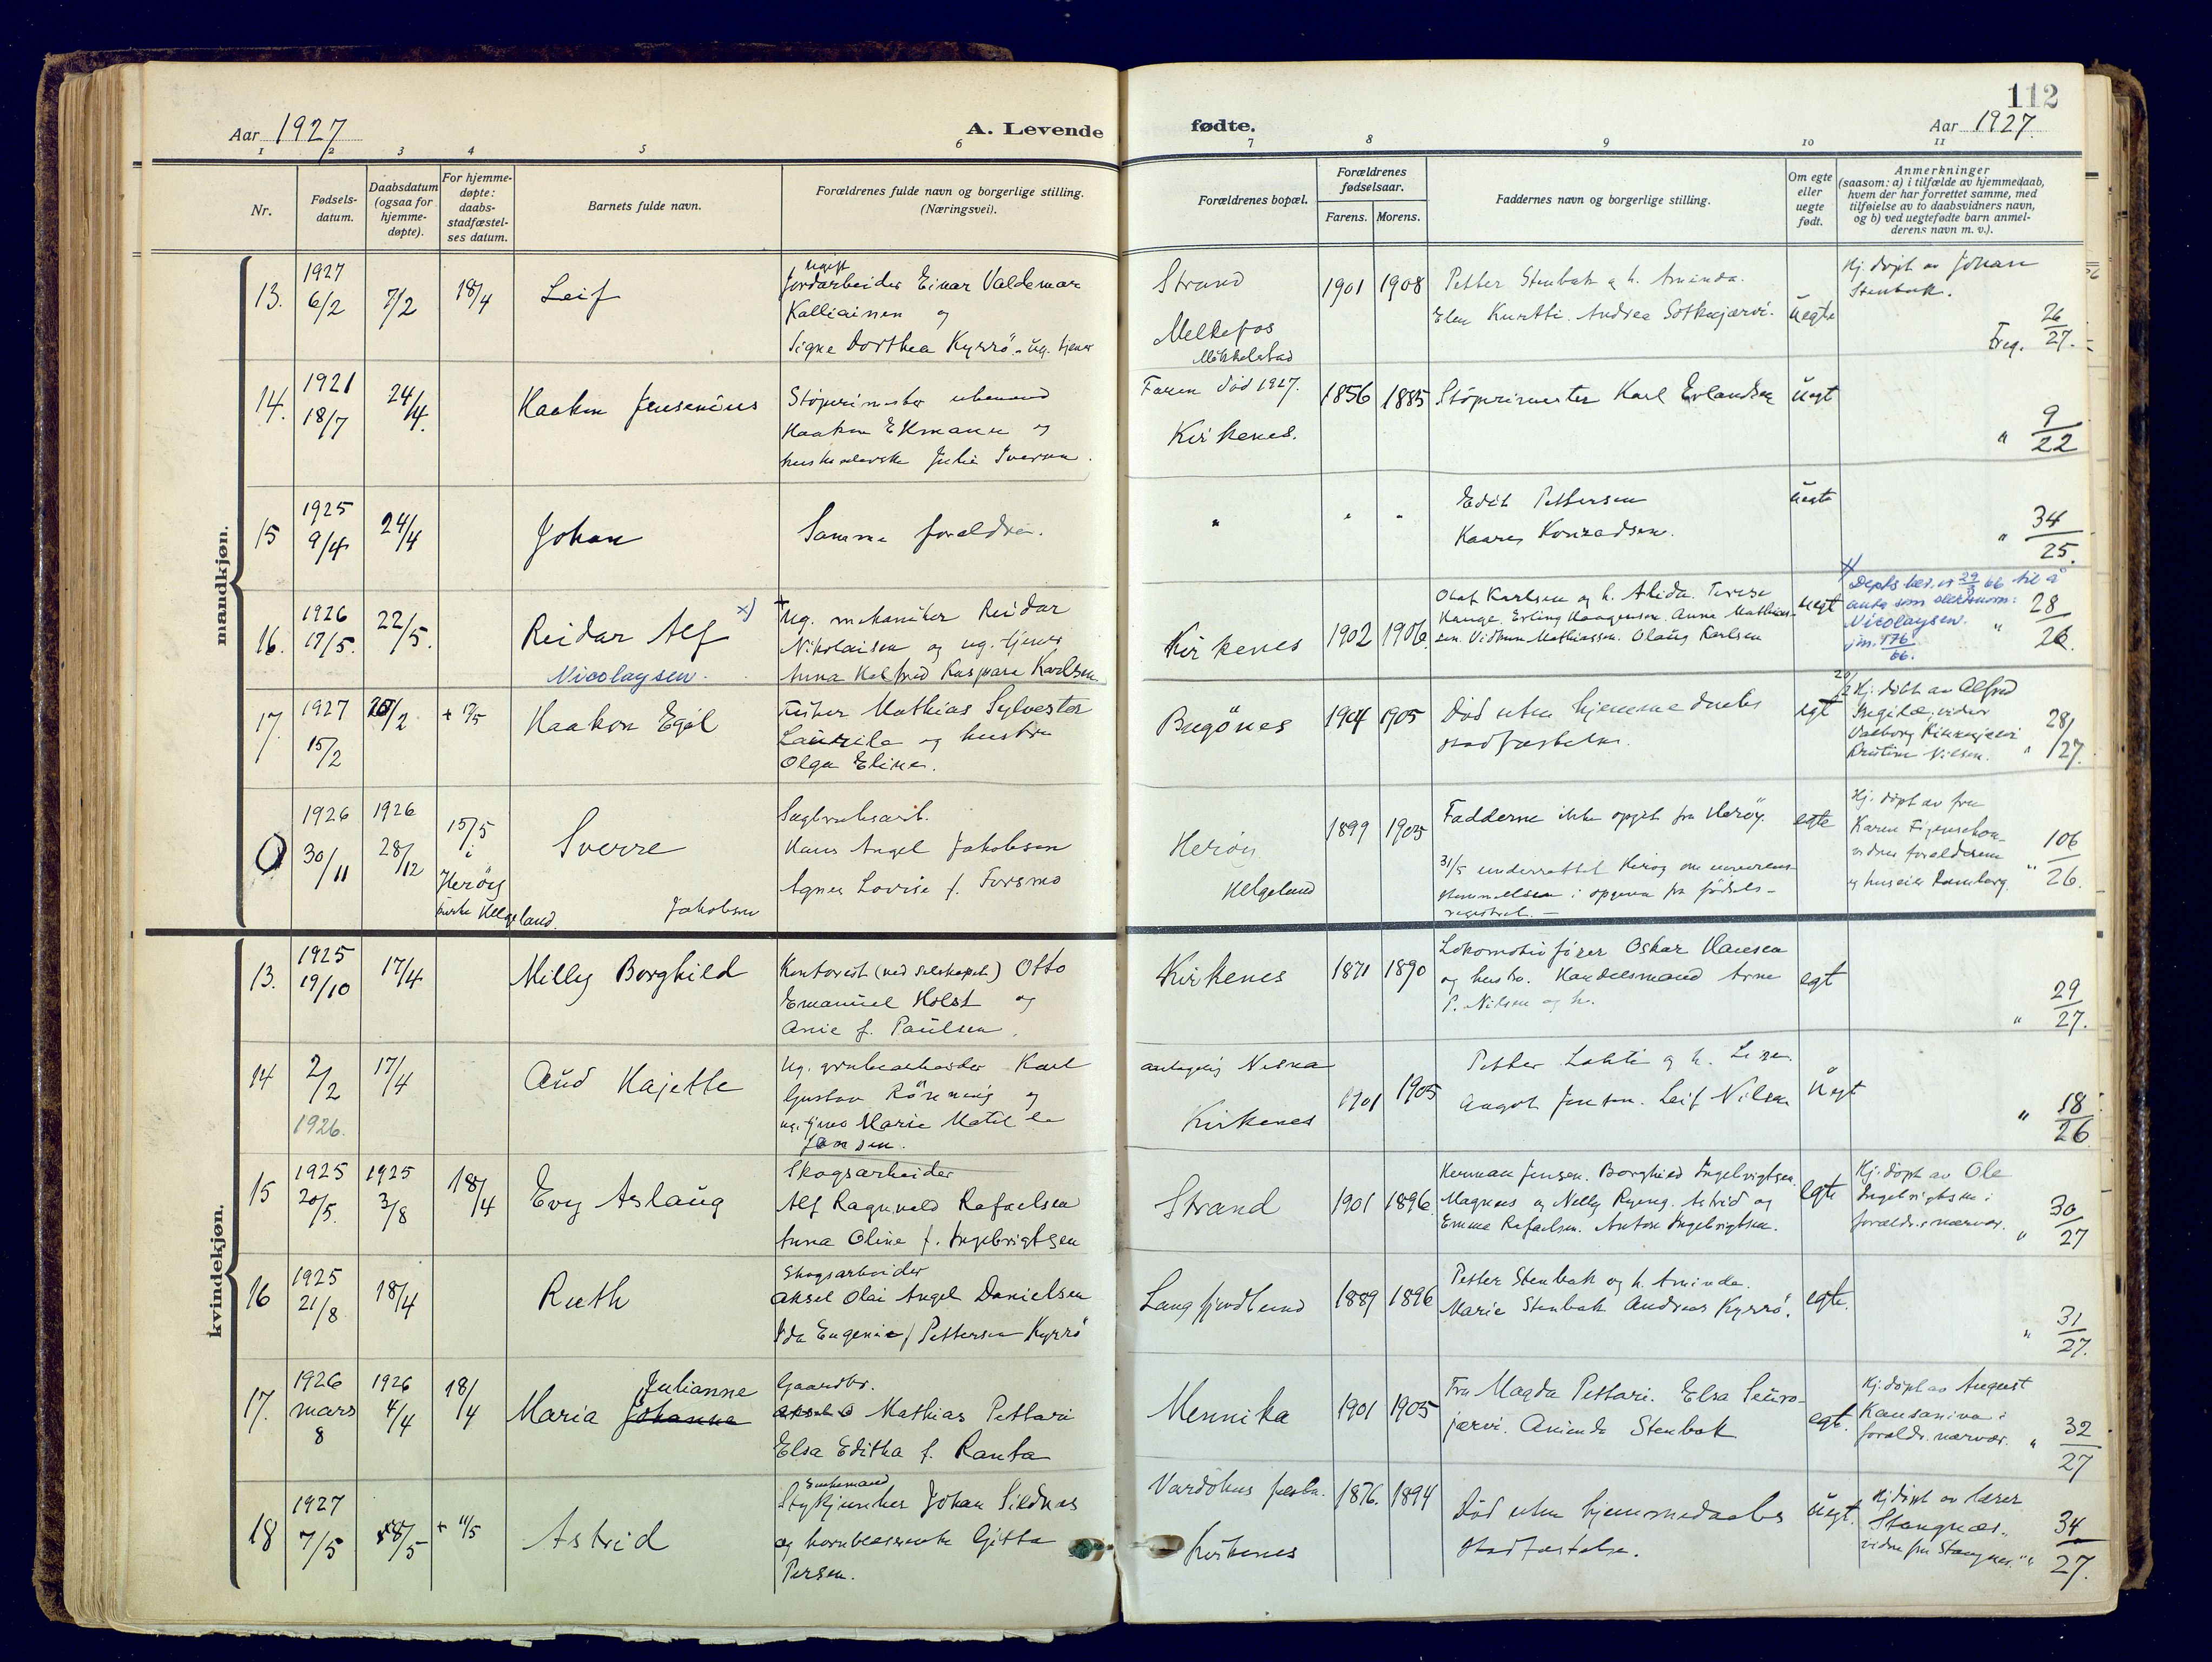 112
Aar 1927
A. Levende fødte.
Aar 1927.
1 2 3 4 5 6 7 8 9 10 11
Nr.
Fødsels-
datum.
Daabsdatum
(ogsaa for
hjemme-
døpte).
For hjemme-
døpte:
daabs-
stadfæstel-
ses datum.
Barnets fulde navn.
Forældrenes fulde navn og borgerlige stilling.
(Næringsvei).
Forældrenes bopæl.
Forældrenes
fødselsaar.
Farens. Morens.
Faddernes navn og borgerlige stilling.
Om egte
eller
uegte
født.
Anmerkninger
(saasom: a) i tilfælde av hjemmedaab,
hvem der har forrettet samme, med
tilføielse av to daabsvidners navn,
og b) ved uegtefødte barn anmel-
derens navn m. v.).
mandkjøn.
13.
1927
6/2
7/2
18/4
Leif
ugift
Jordarbeider Einar Valdemar
Kalliainen og
Signe Dorthea Kyrrö. ug. tjener
Strand
Melkefos
1901 1908
Petter Stenbak g h. Aminda.
Elen Kurtti. Andrea Sotkajærvi.
uegte
Hj. døpt av Johan
Stenbak.
Freg. 26/27.
14.
1921
18/7
24/4.
Haakon Jensenius
Støperimester
Haakon Ekmann og
Julie Iversen.
Faren død 1927.
Kirkenes.
1856 1885
Støperimester Karl Erlandsen
uegt
" 9/22
15
1925
9/4
24/4
Johan
Samme forældre.
" " "
Edit Pettersen
Kaare Konradsen.
uegte
" 34/25.
16.
1926
17/5.
22/5.
Reidar Alf x)
Nicolaysen.
Ug. mekaniker Reidar
Nikolaisen og ug. tjener
Anna Halfrid Kaspara Karlsen
Kirkenes
1902 1906.
Olaf Karlsen og h. Alida. Terese
Hauge. Erling Haagensen. Anna Mathias-
sen. Vidkun Mathiassen. Olaug Karlsen
uegt
til å
anta som slektsnavn:
Nicolaysen.
jnr. 176/66.
" 28/26.
17.
1927
15/2
20/2
+ 17/5
Haakon Egil
Fisker Mathias Sylvester
Laurila og hustru
Olga Eline.
Bugönes
1904 1905
Død uten hjemmedaabs
stadfæstelse.
egt
20/2 Hj. døbt av Alfred
Ingilæ, vidner
Valborg
Kristine Nilsen. " 28/27.
0
1926
30/11
1926
28/12
15/5
i
Herøy
Helgeland.
Sverre
Jakobsen
Sagbruksarb.
Hans Angel Jakobsen
Agnes Lovise f. Forsmo
Herøy
Helgeland
1899 1905
Fadderne ikke opgit fra Herøy.
31/5 underrettet Herøy om uoverens-
stemmelsen i opgava fra fødsels-
registret.
egte
Hj. døpt av fru
Karen
vidner forældrene
og huseier Ramberg. " 106/26.
kvindekjøn.
13.
1925
19/10
17/4
Milly Borghild
Kontorist (ved selskapet) Otto
Emanuel Holst og
Anie f. Paulsen.
Kirkenes
1871 1890
Lokomotivfører Oskar Hansen
og hustru. Handelsmand Arne
P. Nilsen og h.
egt
" 29/27.
14
2/2
1926.
17/4
Aud Hajette
Ug. grubearbeider Karl
Gustav Rönning og
ug. tjener Marie Matilde
Jansen.
antagelig Nesna
Kirkenes
1901 1905
Petter Lahti g h. Lise.
Aagot Jensen. Leif Nilsen
uegt
" 18/26
15
1925
20/5.
1925
3/8
18/4
Evy Aslaug
Skogsarbeider
Alf Ragnvald Rafaelsen
Anna Oline f. Ingebrigtsen
Strand
1901 1896.
Herman Jensen. Borghild Ingebrigtsen.
Magnus og Nelly Ryeng. Astrid og
Emma Rafaelsen. Anton Ingebrigtsen.
egte
Hj. døpt av Ole
Ingebrigtsen i
forældr.s nærvær. " 30/27
16
1925
21/8
18/4
Ruth
Skogsarbeider
Aksel Olai Angel Danielsen
Ida Eugenie f Pettersen Kyrrö
Langfjordbund
1889 1896
Petter Stenbak og h. Aminda.
Marie Stenbak Andreas Kyrrö.
egte.
" 31/27.
17.
1926
mars
8
1926
4/4
18/4
Julianne
Maria Johanna
Gaardbr.
Mathias Pettari
Elsa Editha f. Ranta
Mennika
1901 1905
Fru Magda Pettari. Elsa Seuro-
jærvi. Aminda Stenbak
egt.
Hj. døpt av August
Kansaniva i
forældr. nærvær. " 32/27
18
1927
7/5
+ 11/5
Astrid
Enkemand
Stykjunker Johan Sildnes
og Gitta
Persen.
Vardöhus festn.
Kirkenes
1876. 1894
Død uten hjemmedaabs
stadfæstelse.
uegt.
Hj. døpt av lærer
Stangnæs.
vidne fru Stangnes. " 34/27.